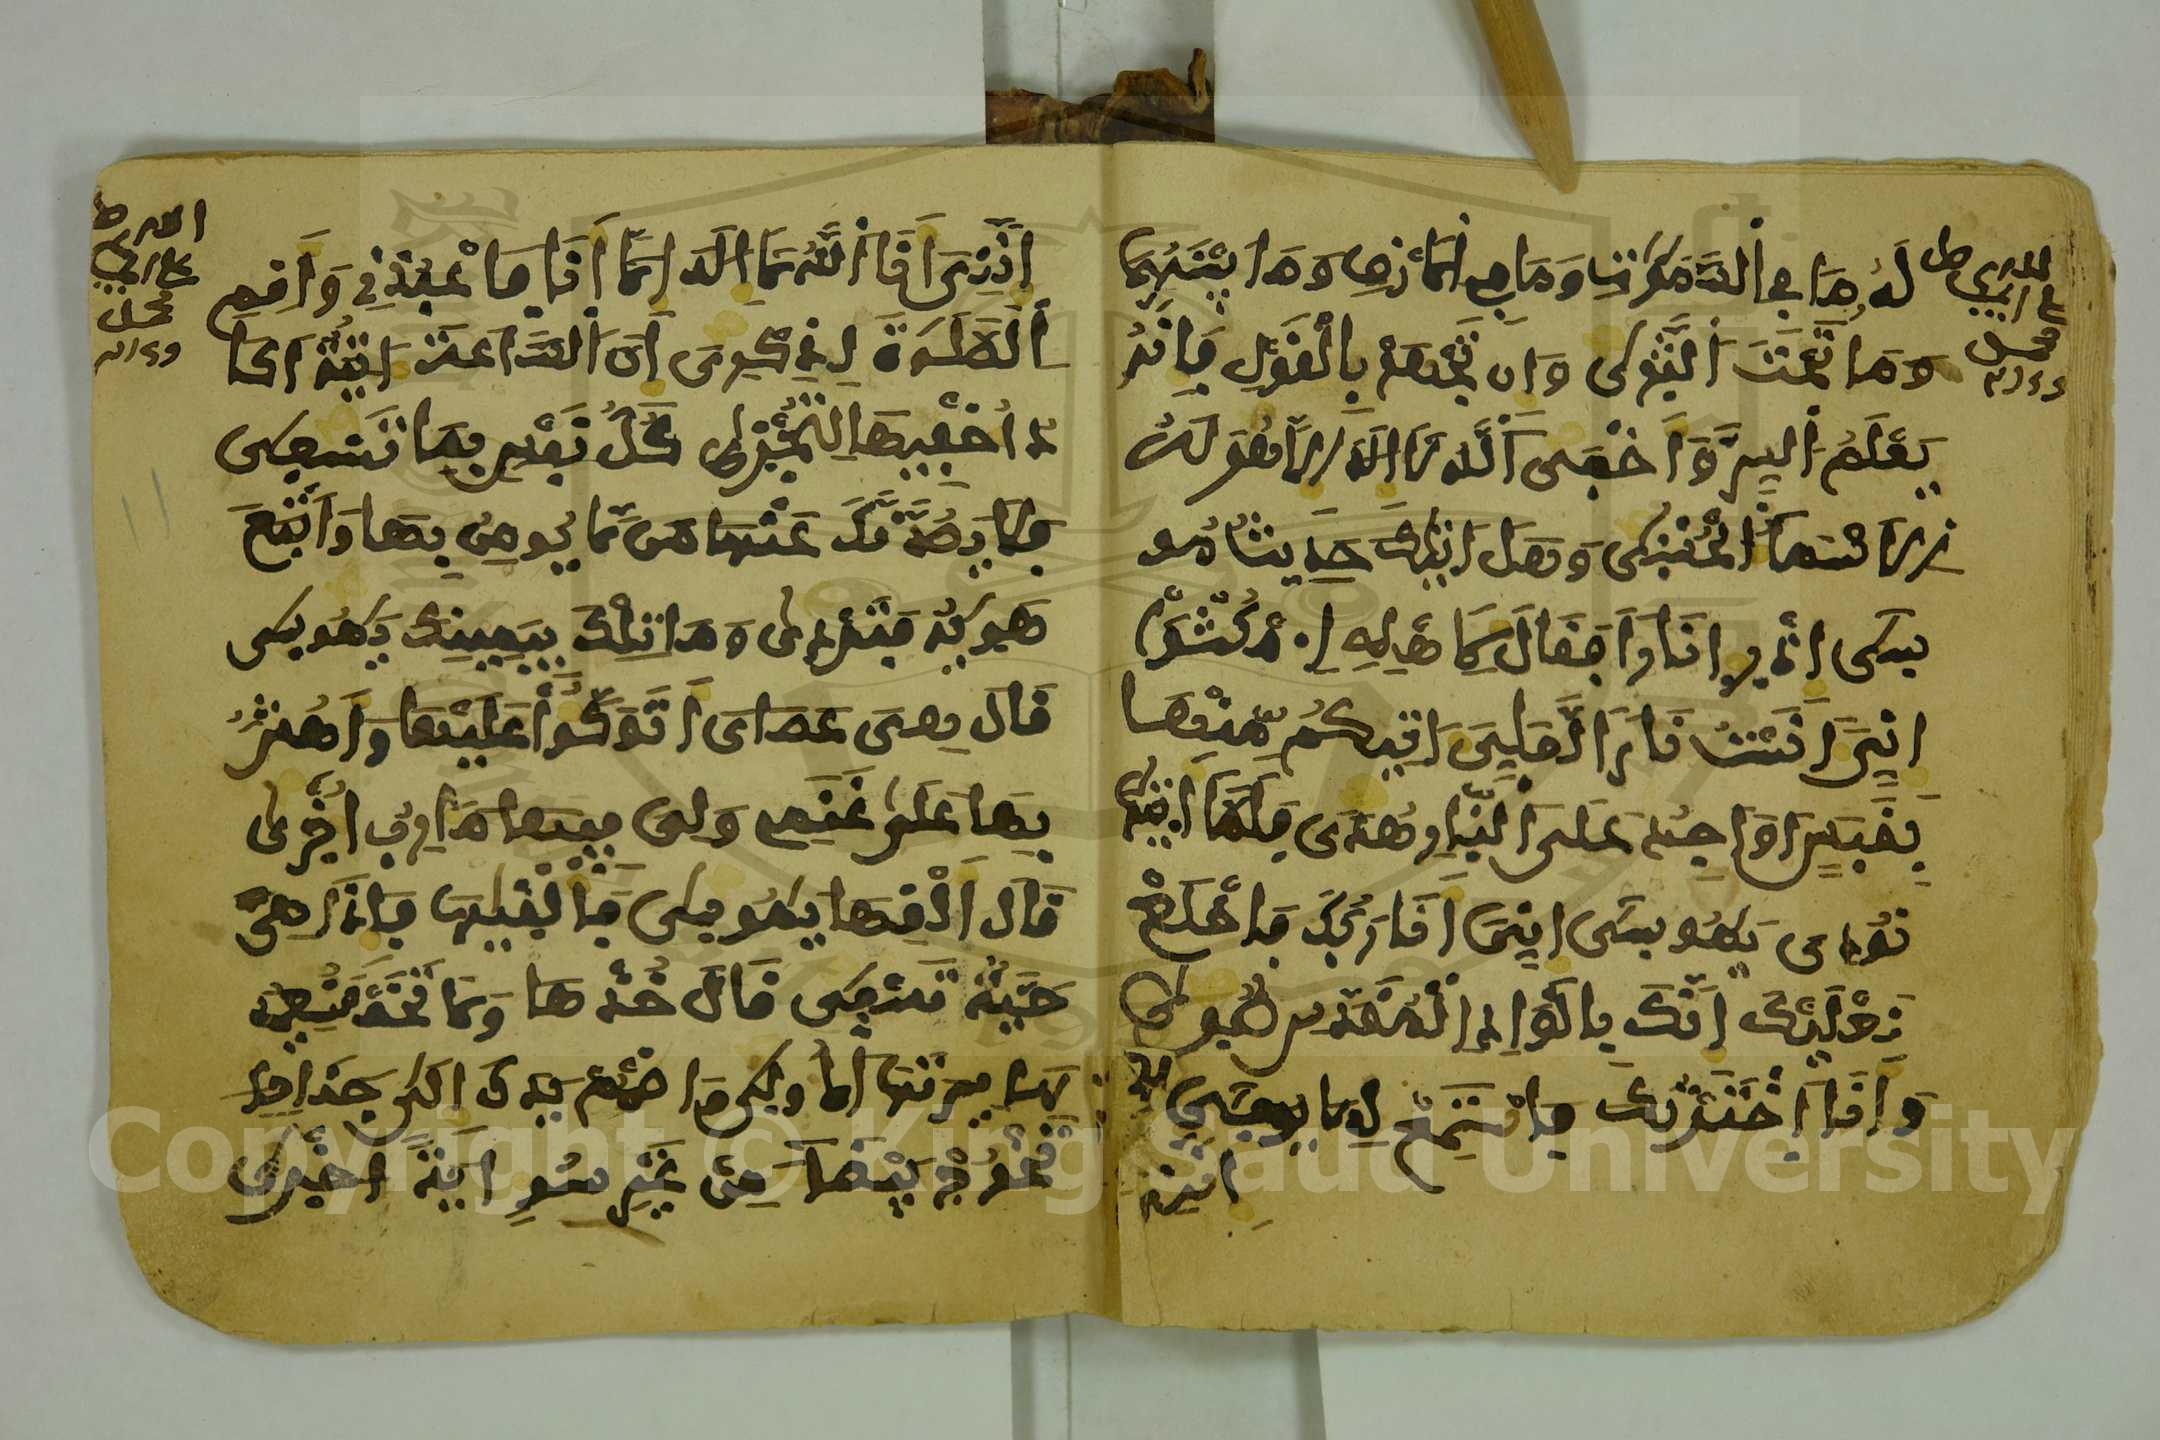 لَهُ مَا فِي السَّمَوَاتِ وَمَا فِي الْأَرْضِ وَمَا بَيْنَهُمَا
وَمَا تَحْتَ الثَّرَى وَإِن تَجْهَرْ بِالْقَوْلِ فَإِنَّهُ
يَعْلَمُ السِّرَّ وَأَخْفَى اللَّهُ لَا إِلَهَ إِلَّا هُوَ لَهُ
الْأَسْمَاءُ الْحُسْنَى وَهَلْ أَتَيكَ حَدِيثُ مُو
سَى إِذْ رَا نَارًا فَقَالَ لِأَهْلِهِ امْكُثُوا
إِنِّيَ آنَسْتُ نَارًا لَّعَلِّيَ آتِيكُم مِّنْهَا
بِقَبَسٍ أَوْ أَجِدُ عَلَى النَّارِ هُدًى فَلَمَّا أَتَيهَا
نُودِيَ يَمُوسَى إِنِّيَ أَنَا رَبُّكَ فَاخْلَعْ
نَعْلَيْكَ إِنَّكَ بِالْوَادِ الْمُقَدَّسِ طُوَى
وَأَنَا اخْتَرْتُكَ فَاسْتَمِعْ لِمَا يُوحَى
إِنَّنِي
إِنَّنِيَ أَنَا اللَّهُ لَا إِلَهَ إِلَّا أَنَا فَاعْبُدْنِي وَأَقِمِ
الصَّلَوةَ لِذِكْرِيَ إِنَّ السَّاعَةَ آتِيَةٌ أَكَا
دُ أُخْفِيهَا لِتُجْزَى كُلُّ نَفْسٍ بِمَا تَسْعَى
فَلَا يَصُدَّنَّكَ عَنْهَا مَن لَّا يُومِنُ بِهَا وَاتَّبَعَ
هَوَيهُ فَتَرْدَى وَمَا تِلْكَ بِيَمِينِكَ يَمُوسَى
قَالَ هِيَ عَصَايَ أَتَوَكَّؤُا عَلَيْهَا وَأَهُشُّ
بِهَا عَلَى غَنَمِي وَلِيَ فِيهَا مَآرِبُ أُخْرَى
قَالَ أَلْقِهَا يَمُوسَى فَأَلْقَيهَا فَإِذَا هِيَ
حَيَّةٌ تَسْعَى قَالَ خُذْهَا وَلَا تَخَفْ سَنُعِيدُ
هَا سِيرَتَهَا الْأُولَى وَاضْمُمْ يَدَكَ إِلَى جَنَاحِكَ
تَخْرُجْ بَيْضَاءَ مِنْ غَيْرِ سُوءٍ آيَةً أُخْرَى